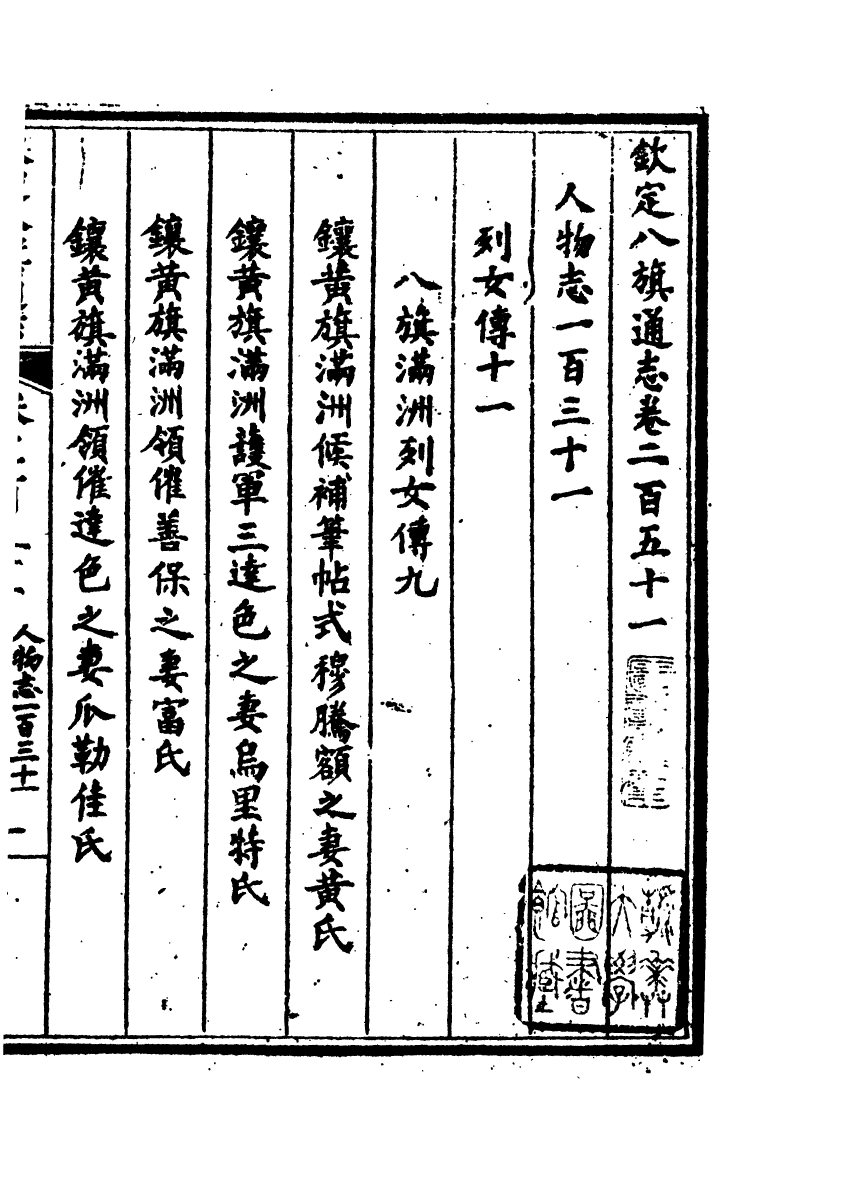 欽定八旗通志卷二百五十一
人物志一百三十一
列女傳十一
八旗滿洲列女傳九
鑲黃旗滿洲候補筆帖式穆騰額之妻黃氏
鑲黃旗滿洲護軍三達色之妻烏里特氏
鑲黃旗滿洲領催善保之妻富氏
鑲黃旗滿洲領催達色之妻瓜勒佳氏
人物志一百三十一
一